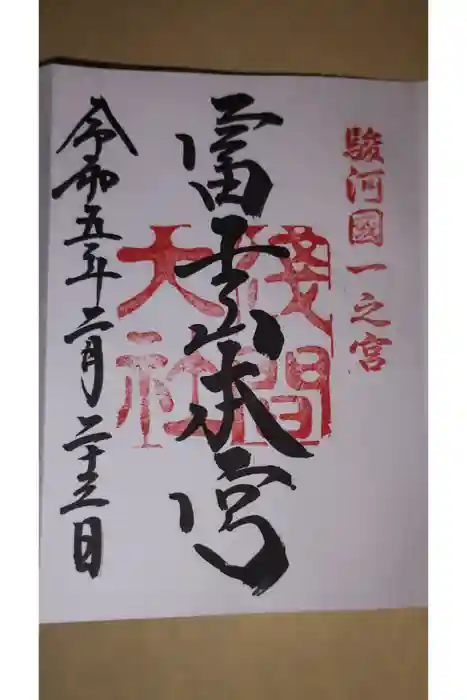 駿河國一之宮
富士山本宮
淺間
大社
令和五年二月二十三日